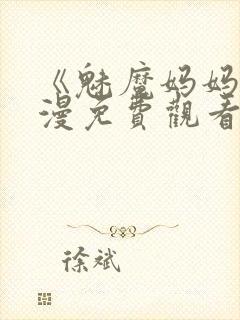 《魅魔妈妈
漫免費觀看
徐斌